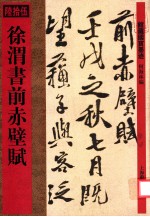 陸拾伍
徐渭書前赤壁賦
前赤壁賦
壬戌之秋七月既
望蘇子與客泛